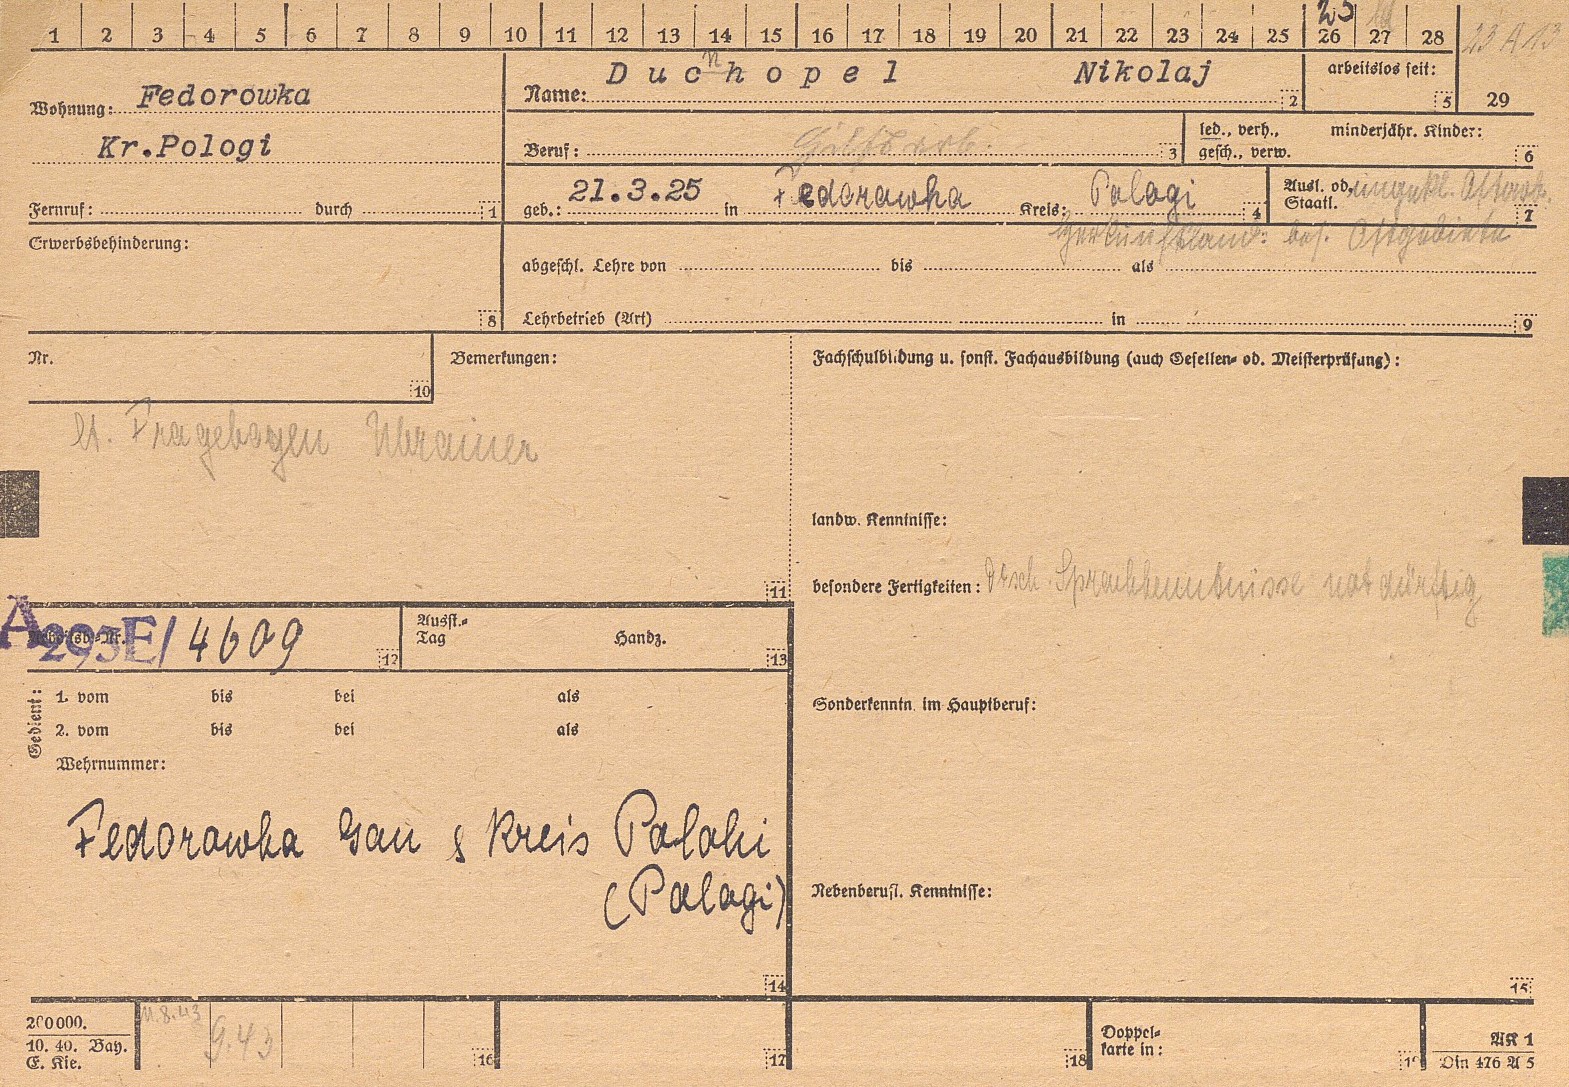 1 2 3 4 5 6 7 8 9 10 11 12 13 14 15 16 17 18 19 20 21 22 23 24 25 26 27 28
25
23 A 13
29
Wohnung: Fedorowka
Kr.Pologi
Fernruf: durch 1
n
Name: Duchopel Nikolaj 2
arbeitslos seit: 5
Beruf: Hilfsarb. 3
led., verh., minderjähr. Kinder:
gesch., verw. 6
geb.: 21.3.25 in Fedorawka Kreis: Palagi 4
Ausl. od. ungekl. Ostarb.
Staatl. 7
Herkunftland: bes. Ostgebiete
Erwerbsbehinderung: 8
abgeschl. Lehre von bis als
Lehrbetrieb (Art) in 9
Nr. 10
Bemerkungen:
lt. Fragebogen Ukrainer
11
Fachschulbildung u. sonst. Fachausbildung (auch Gesellen- od. Meisterprüfung):
landw. Kenntnisse:
besondere Fertigkeiten: Dtsch. Sprachkenntnisse notdürftig
Sonderkenntn. im Hauptberuf:
Nebenberufl. Kenntnisse:
15
Arbeitsb.-Nr.
A 293E/ 4609 12
Ausst.-
Tag Handz. 13
Gedient:
1. vom bis bei als
2. vom bis bei als
Wehrnummer:
Fedorowka Gau & Kreis Palohi
(Palagi)
14
200000.
10. 40. Bay.
E. Kie.
11.8.43
9.43
16
17
18
Doppel-
karte in:
19
AK 1
Din 476 A 5